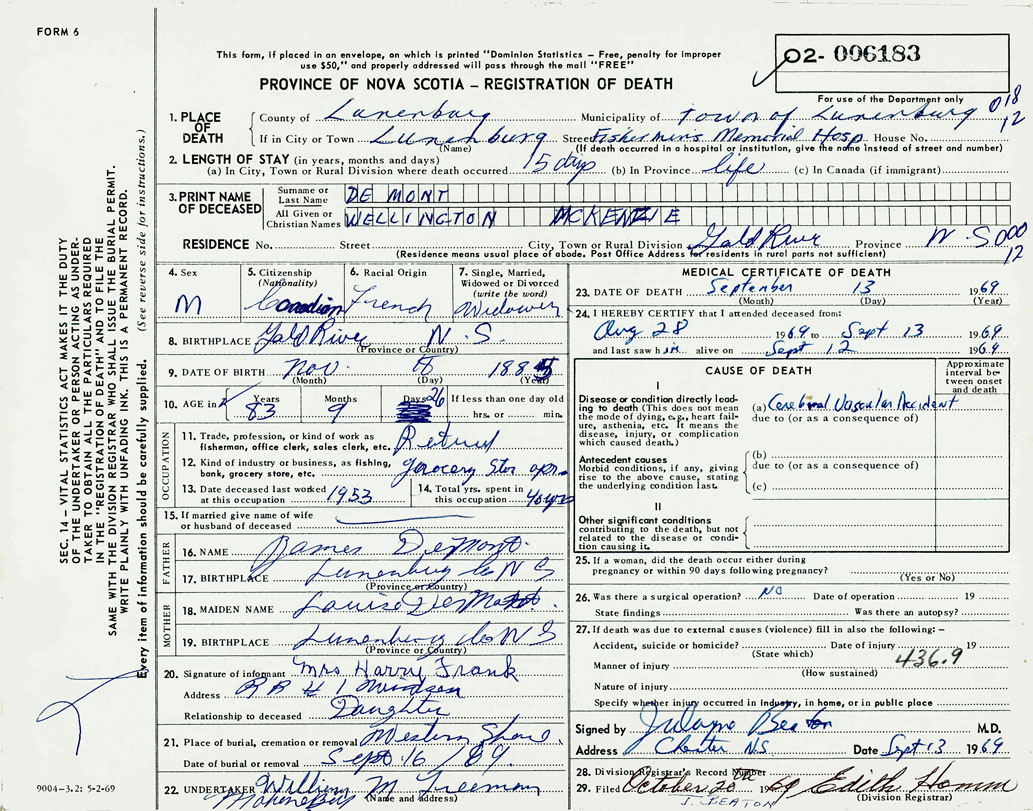 FORM 6
This form, if placed in an envelope, on which is printed "Dominion Statistics – Free, penalty for improper
use $50," and properly addressed will pass through the mail "FREE"
PROVINCE OF NOVA SCOTIA – REGISTRATION OF DEATH
02- 006183
For use of the Department only
018
12
1. PLACE OF DEATH
County of Lunenburg Municipality of Town of Lunenburg
If in City or Town Lunenburg Street Fishermen's Memorial Hosp. House No.
(Name) (If death occurred in a hospital or institution, give the name instead of street and number)
2. LENGTH OF STAY (in years, months and days)
(a) In City, Town or Rural Division where death occurred 15 days (b) In Province life (c) In Canada (if immigrant)
3. PRINT NAME OF DECEASED
Surname or Last Name DE MONT
All Given or Christian Names WELLINGTON MCKENZIE
RESIDENCE No. Street City, Town or Rural Division Gold River Province N.S. 000
12
(Residence means usual place of abode. Post Office Address for residents in rural parts not sufficient)
4. Sex M
5. Citizenship (Nationality) Canadian
6. Racial Origin French
7. Single, Married, Widowed or Divorced (write the word) Widower
8. BIRTHPLACE Gold River N.S.
(Province or Country)
9. DATE OF BIRTH Nov. 18 1885
(Month) (Day) (Year)
10. AGE in Years 83 Months 9 Days 26 If less than one day old hrs. or min.
OCCUPATION
11. Trade, profession, or kind of work as fisherman, office clerk, sales clerk, etc. Retired
12. Kind of industry or business, as fishing, bank, grocery store, etc. grocery Stor opr.
13. Date deceased last worked at this occupation 1953
14. Total yrs. spent in this occupation 40 yrs
15. If married give name of wife or husband of deceased
FATHER
16. NAME James DeMont
17. BIRTHPLACE Lunenburg Co N S
(Province or Country)
MOTHER
18. MAIDEN NAME Louise DeMont
19. BIRTHPLACE Lunenburg Co N S
(Province or Country)
20. Signature of informant Mrs Harry Frank
Address R R # 1 Windsor
Relationship to deceased Daughter
21. Place of burial, cremation or removal Western Shore
Date of burial or removal Sept. 16 / 69.
22. UNDERTAKER William M Freeman
Mahone Bay (Name and address)
MEDICAL CERTIFICATE OF DEATH
23. DATE OF DEATH September 13 1969
(Month) (Day) (Year)
24. I HEREBY CERTIFY that I attended deceased from:
Aug 28 1969 to Sept 13 1969
and last saw him alive on Sept 12 1969
CAUSE OF DEATH
Approximate interval between onset and death
I
Disease or condition directly leading to death (This does not mean the mode of dying, e.g., heart failure, asthenia, etc. It means the disease, injury, or complication which caused death.)
(a) Cerebral Vascular Accident
due to (or as a consequence of)
Antecedent causes
Morbid conditions, if any, giving rise to the above cause, stating the underlying condition last.
(b)
due to (or as a consequence of)
(c)
II
Other significant conditions
contributing to the death, but not related to the disease or condition causing it.
25. If a woman, did the death occur either during pregnancy or within 90 days following pregnancy?
(Yes or No)
26. Was there a surgical operation? NO Date of operation 19
State findings Was there an autopsy?
27. If death was due to external causes (violence) fill in also the following: –
Accident, suicide or homicide? Date of injury 19
(State which)
Manner of injury 436.9
(How sustained)
Nature of injury
Specify whether injury occurred in Industry, in home, or in public place
Signed by Beaton M.D.
Address Chester N.S. Date Sept 13 1969
28. Division Registrar's Record Number
29. Filed October 20th 1969 Edith Homm
J. BEATON (Division Registrar)
SEC. 14 – VITAL STATISTICS ACT MAKES IT THE DUTY
OF THE UNDERTAKER OR PERSON ACTING AS UNDER-
TAKER TO OBTAIN ALL THE PARTICULARS REQUIRED
IN THE "REGISTRATION OF DEATH" AND TO FILE THE
SAME WITH THE DIVISION REGISTRAR WHO SHALL ISSUE THE BURIAL PERMIT.
WRITE PLAINLY WITH UNFADING INK. THIS IS A PERMANENT RECORD.
Every item of information should be carefully supplied. (See reverse side for instructions.)
9004–3.2: 5-2-69